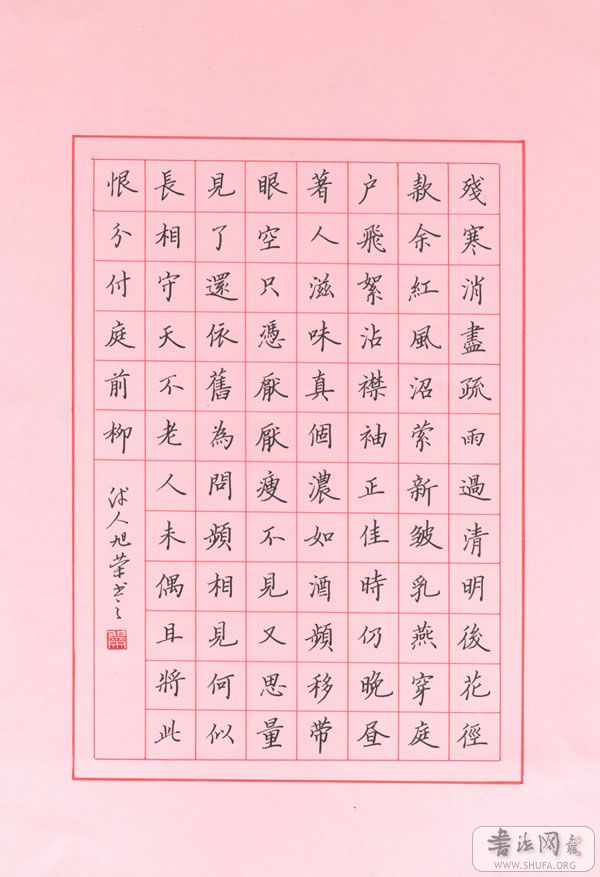 殘寒消盡疏雨過清明後花徑
款余紅風沼萦新皺乳燕穿庭
户飛絮沾襟袖正佳時仍晚昼
著人滋味真個濃如酒頻移带
眼空只憑厭厭瘦不見又思量
見了還依舊為問頻相見何似
長相守天不老人未偶且將此
恨分付庭前柳
人旭荣书之
书法网
WWW.SHUFA.ORG